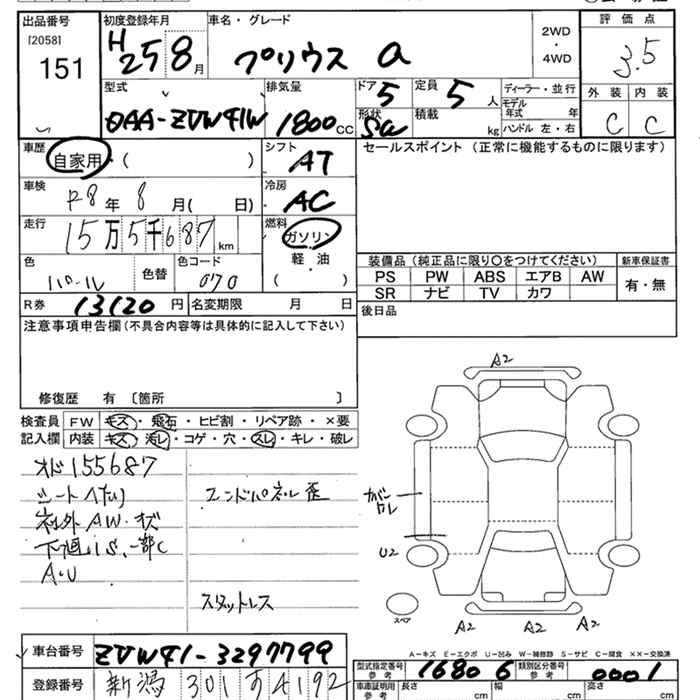 出品番号 初度登録年月 車名・グレード 2WD ・ 4WD 評価点
[2058]
151 H25 8月 プリウス a 3.5
型式 排気量 ドア 定員 ディーラー・並行 外装 内装
DAA-ZVW41W 1800cc 5 5人 モデル年式 年 C C
形状 積載 kg ハンドル 左・右
車歴 自家用・( ) シフト AT セールスポイント (正常に機能するものに限ります)
車検 R8年 8月( 日) 冷房 AC
走行 15万5千687km 燃料 ガソリン・軽油・( )
色 パール 色替 色コード 070
装備品(純正品に限り○をつけてください) 新車保証書
PS PW ABS エアB AW 有・無
SR ナビ TV カワ
R券 13120円 名変期限 月 日 後日品
注意事項申告欄(不具合内容等は具体的に記入して下さい)
修復歴 有 〔箇所 〕
検査員 FW キズ・飛石・ヒビ割・リペア跡・×要
記入欄 内装 キズ・汚レ・コゲ・穴・スレ・キレ・破レ
オド155687
シートヘタリ エンドパネル歪
AW・キズ
下廻りS、一部C
A・U
スタットレス
A2
カバーワレ
U2
スペア
A2 A2 A2
A-キズ E-エクボ U-凹み W-補修跡 S-サビ C-腐食 ××-交換済
車台番号 ZVW41-3297799 型式指定番号 参考 16806 類別区分番号 参考 0001
登録番号 新潟 301 す 4192 車庫証明用 参考 長さ cm 幅 cm 高さ cm